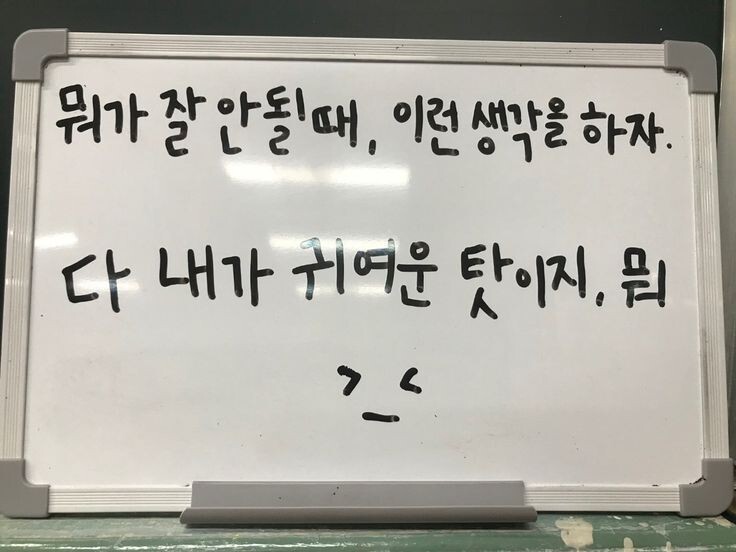 뭐가 잘 안될 때, 이런 생각을 하자.
다 내가 귀여운 탓이지, 뭐
>_<